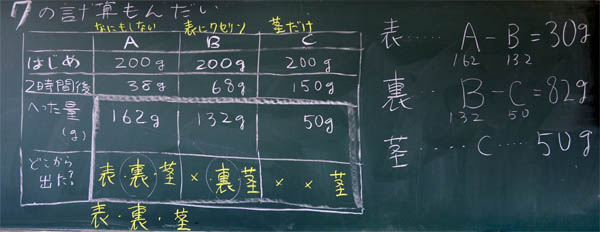 7の計算もんだい
なにもしない 表にワセリン 茎だけ
A B C
はじめ 200g 200g 200g
2時間後 38g 68g 150g
へった量(g) 162g 132g 50g
どこから出た? 表・裏・茎 × 裏・茎 × × 茎
表・裏・茎
表……A-B=30g
162 132
裏…B-C=82g
132 50
茎……C……50g